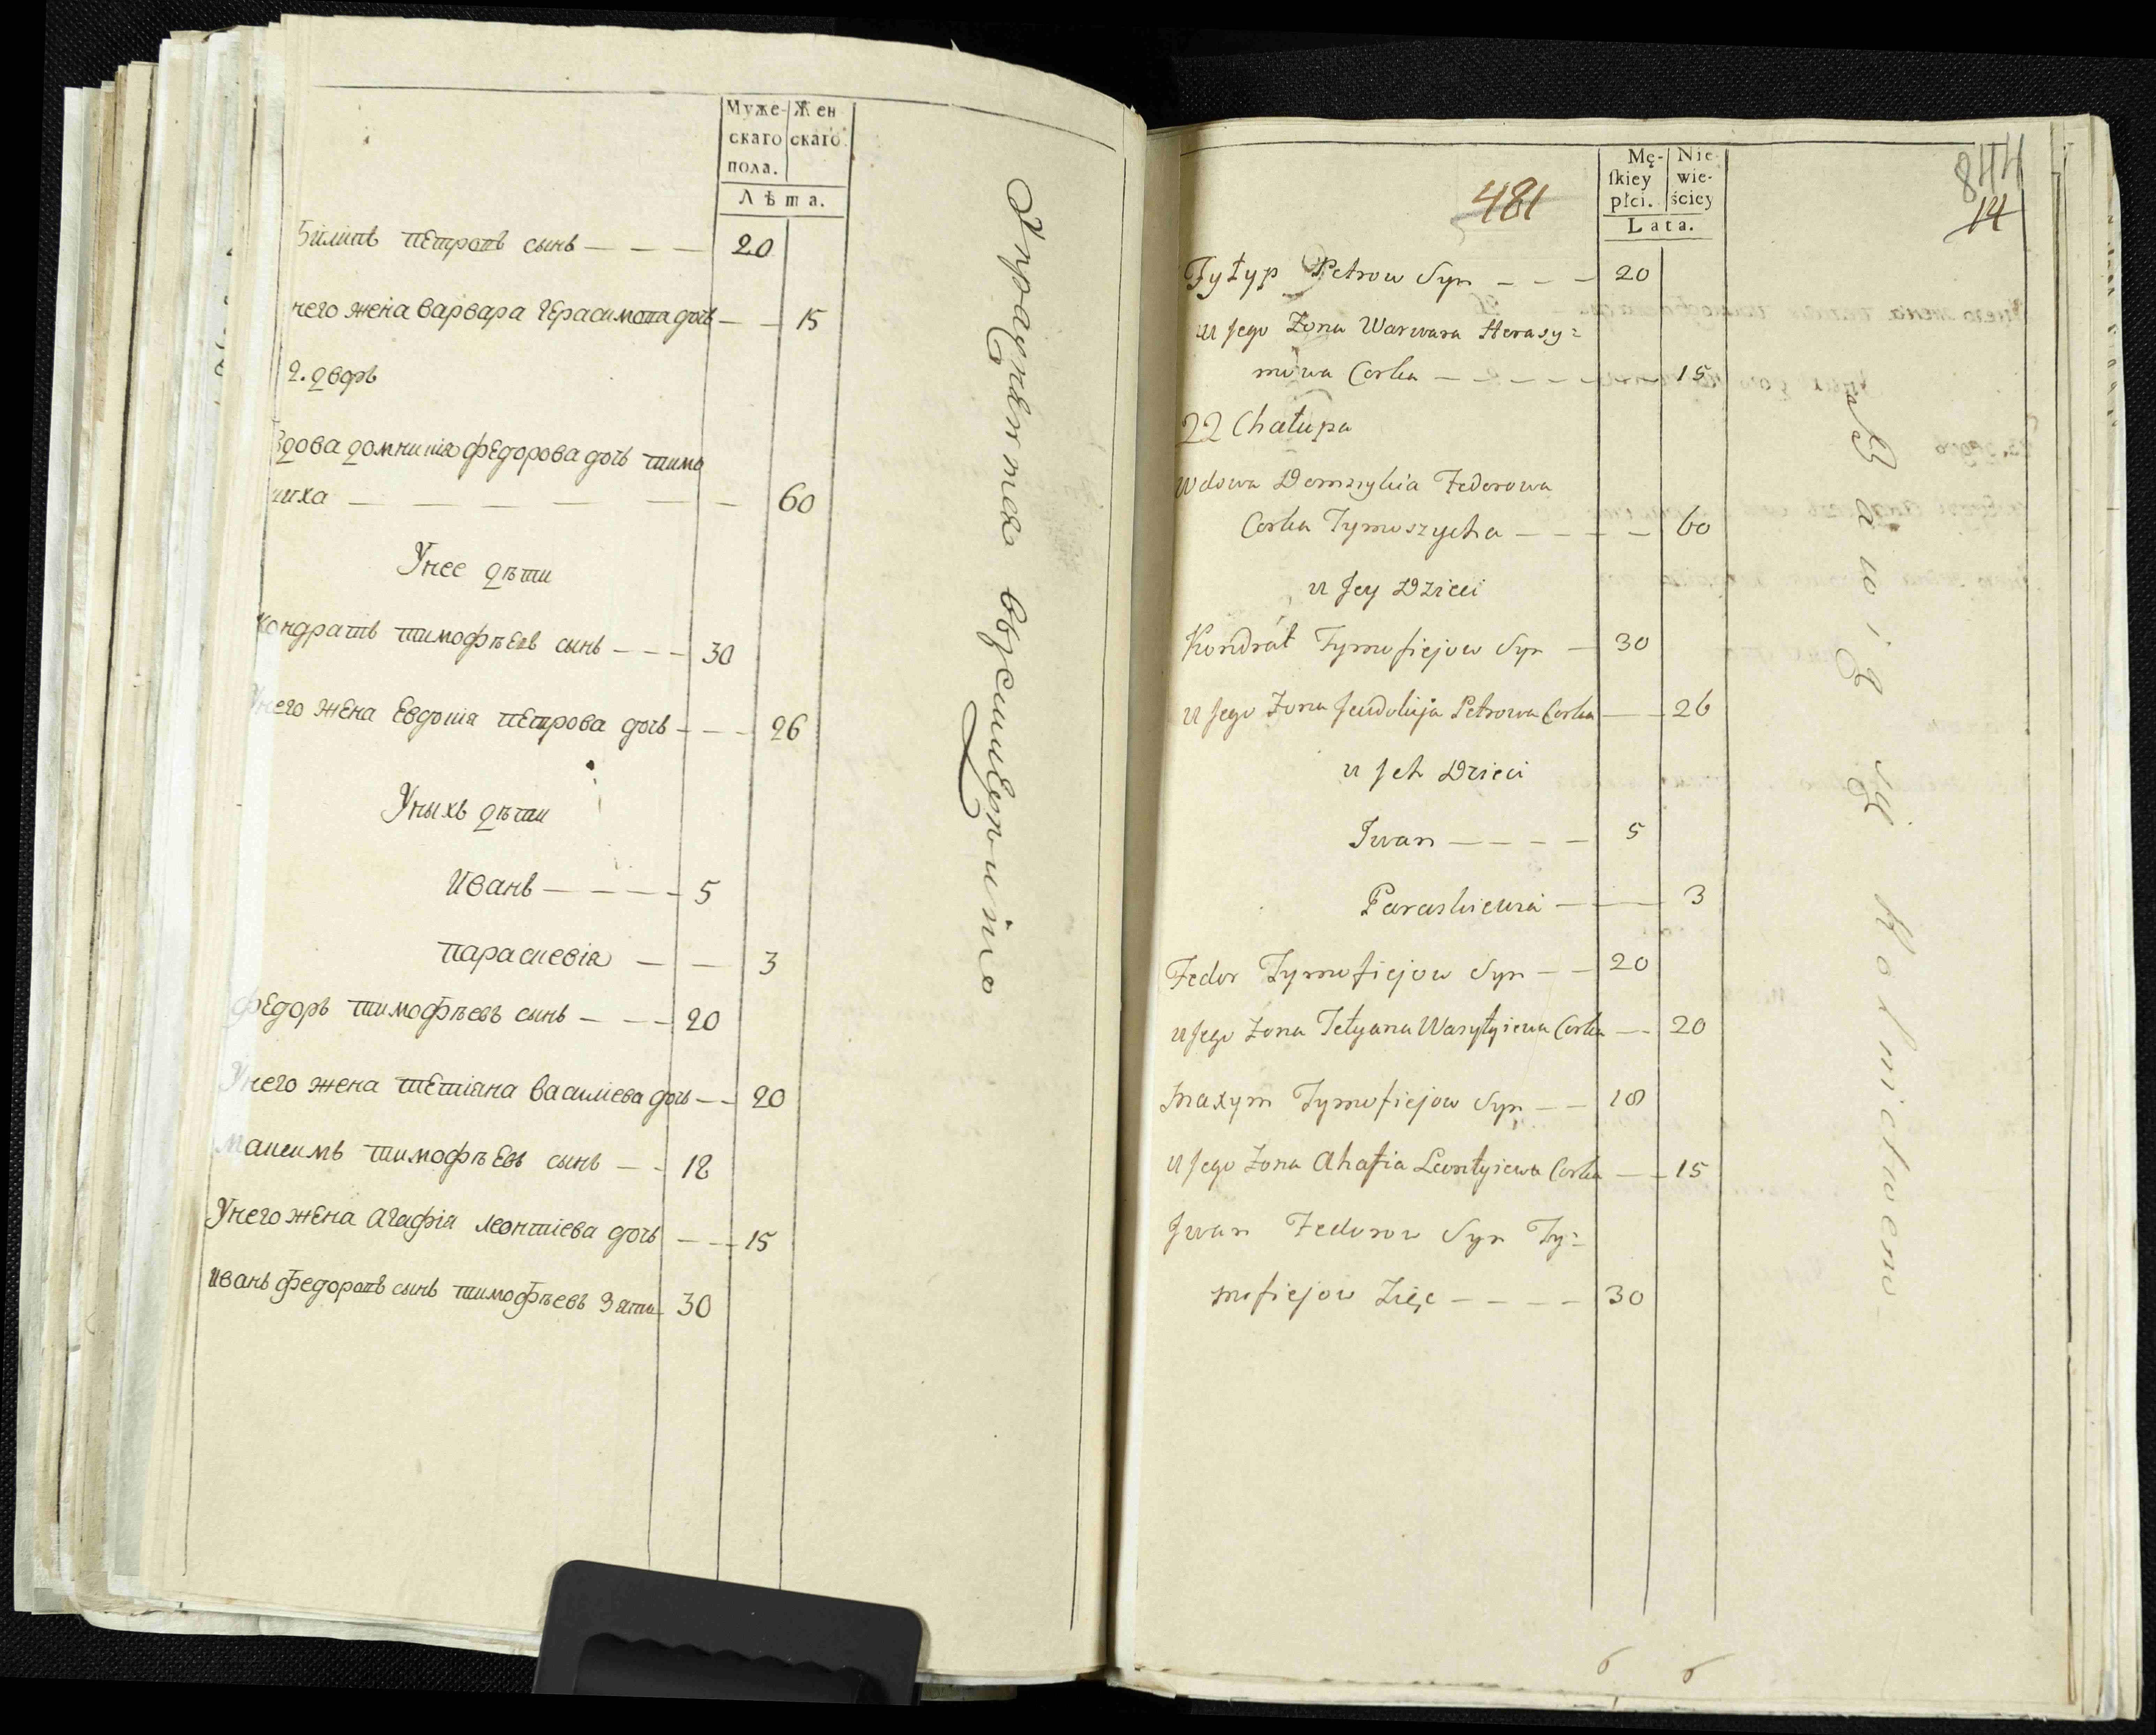 Муже-
скаго
пола.
Жен
скаго.
Лѣта.
Билипъ петровъ сынъ — — — 20
него жена варвара герасимова дочь — — 15
2. дворъ
Вдова домникия федорова дочь тимо
шиха — — — — — 60
Унее дѣти
кондратъ тимофѣевъ сынъ — — — 30
Унего жена Евдокия петрова дочь — — — 26
Уныхъ дѣти
Иванъ — — — — 5
параскевія — — 3
федоръ тимофѣевъ сынъ — — — 20
Унего жена тетіяна василиева дочь — — 20
максимъ тимофѣевъ сынъ — — 18
Унего жена агафія леонтіева дочь — — 15
Иванъ федоровъ сынъ тимофѣевъ зять 30
481
844
14
Mę-
ſkiey
płci.
Nie
wie-
ściey
Lata.
Fyłyp Petrow Syn — — — 20
u Jego Zona Warwara Herasy=
mowa Corka — — — — — 15
22 Chałupa
Wdowa Domnykia Fedorowa
Corka Tymoszycha — — — — 60
u Jey Dzieci
Kondrat Tymofiejow Syn — 30
u Jego Zona Jewdokija Petrowa Corka — — 26
u Jch Dzieci
Iwan — — — — 5
Paraskiewia — — — 3
Fedor Tymofiejow Syn — — 20
u Jego Zona Tetyana Wasyłyiewa Corka — — 20
Maxym Tymofiejow Syn — — 18
u Jego Zona Ahafia Leontyiewa Corka — — 15
Jwan Fedorow Syn Ty=
mofiejow Zięc — — — — 30
6 6